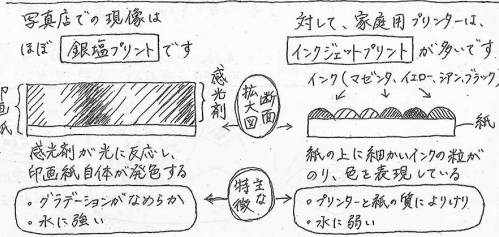 写真店での現像は
ほぼ 銀塩プリント です
印画紙
感光剤
感光剤が光に反応し、
印画紙自体が発色する
・グラデーションがなめらか
・水に強い
断面
拡大図
主な
特徴
対して、家庭用プリンターは、
インクジェットプリント が多いです。
インク(マゼンタ、イエロー、シアン、ブラック)
紙
紙の上に細かいインクの粒が
のり、色を表現している
・プリンターと紙の質によりけり
・水に弱い